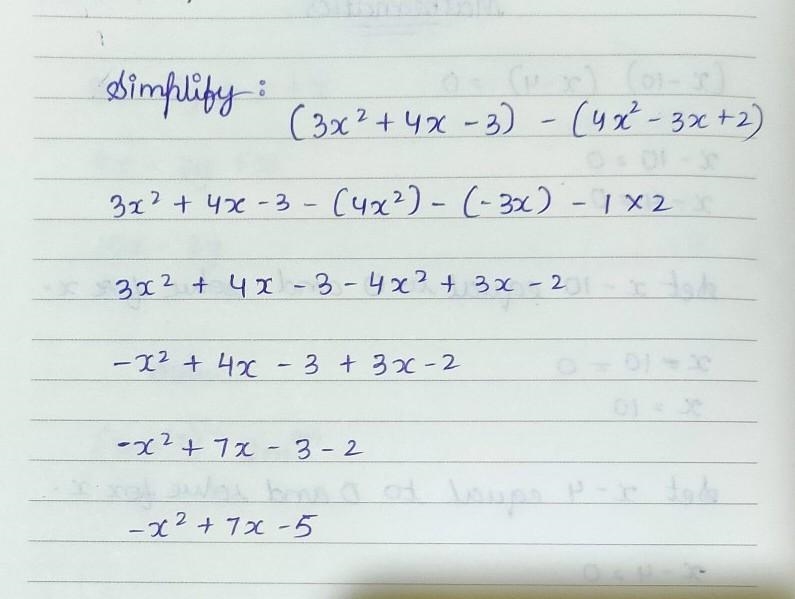 Simplify:
(3x² + 4x - 3) - (4x² - 3x + 2)
3x² + 4x - 3 - (4x²) - (-3x) - 1 × 2
3x² + 4x - 3 - 4x² + 3x - 2
-x² + 4x - 3 + 3x - 2
-x² + 7x - 3 - 2
-x² + 7x - 5